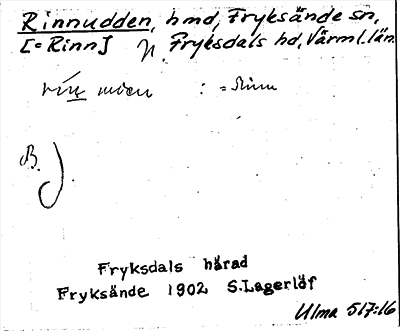 Rinnudden, hmd, Fryksände sn,
[= Rinn] N. Fryksdals hd, Värml. län.
: = Rinn
B.
Fryksdals härad
Fryksände 1902 S.Lagerlöf
Ulma 517:16